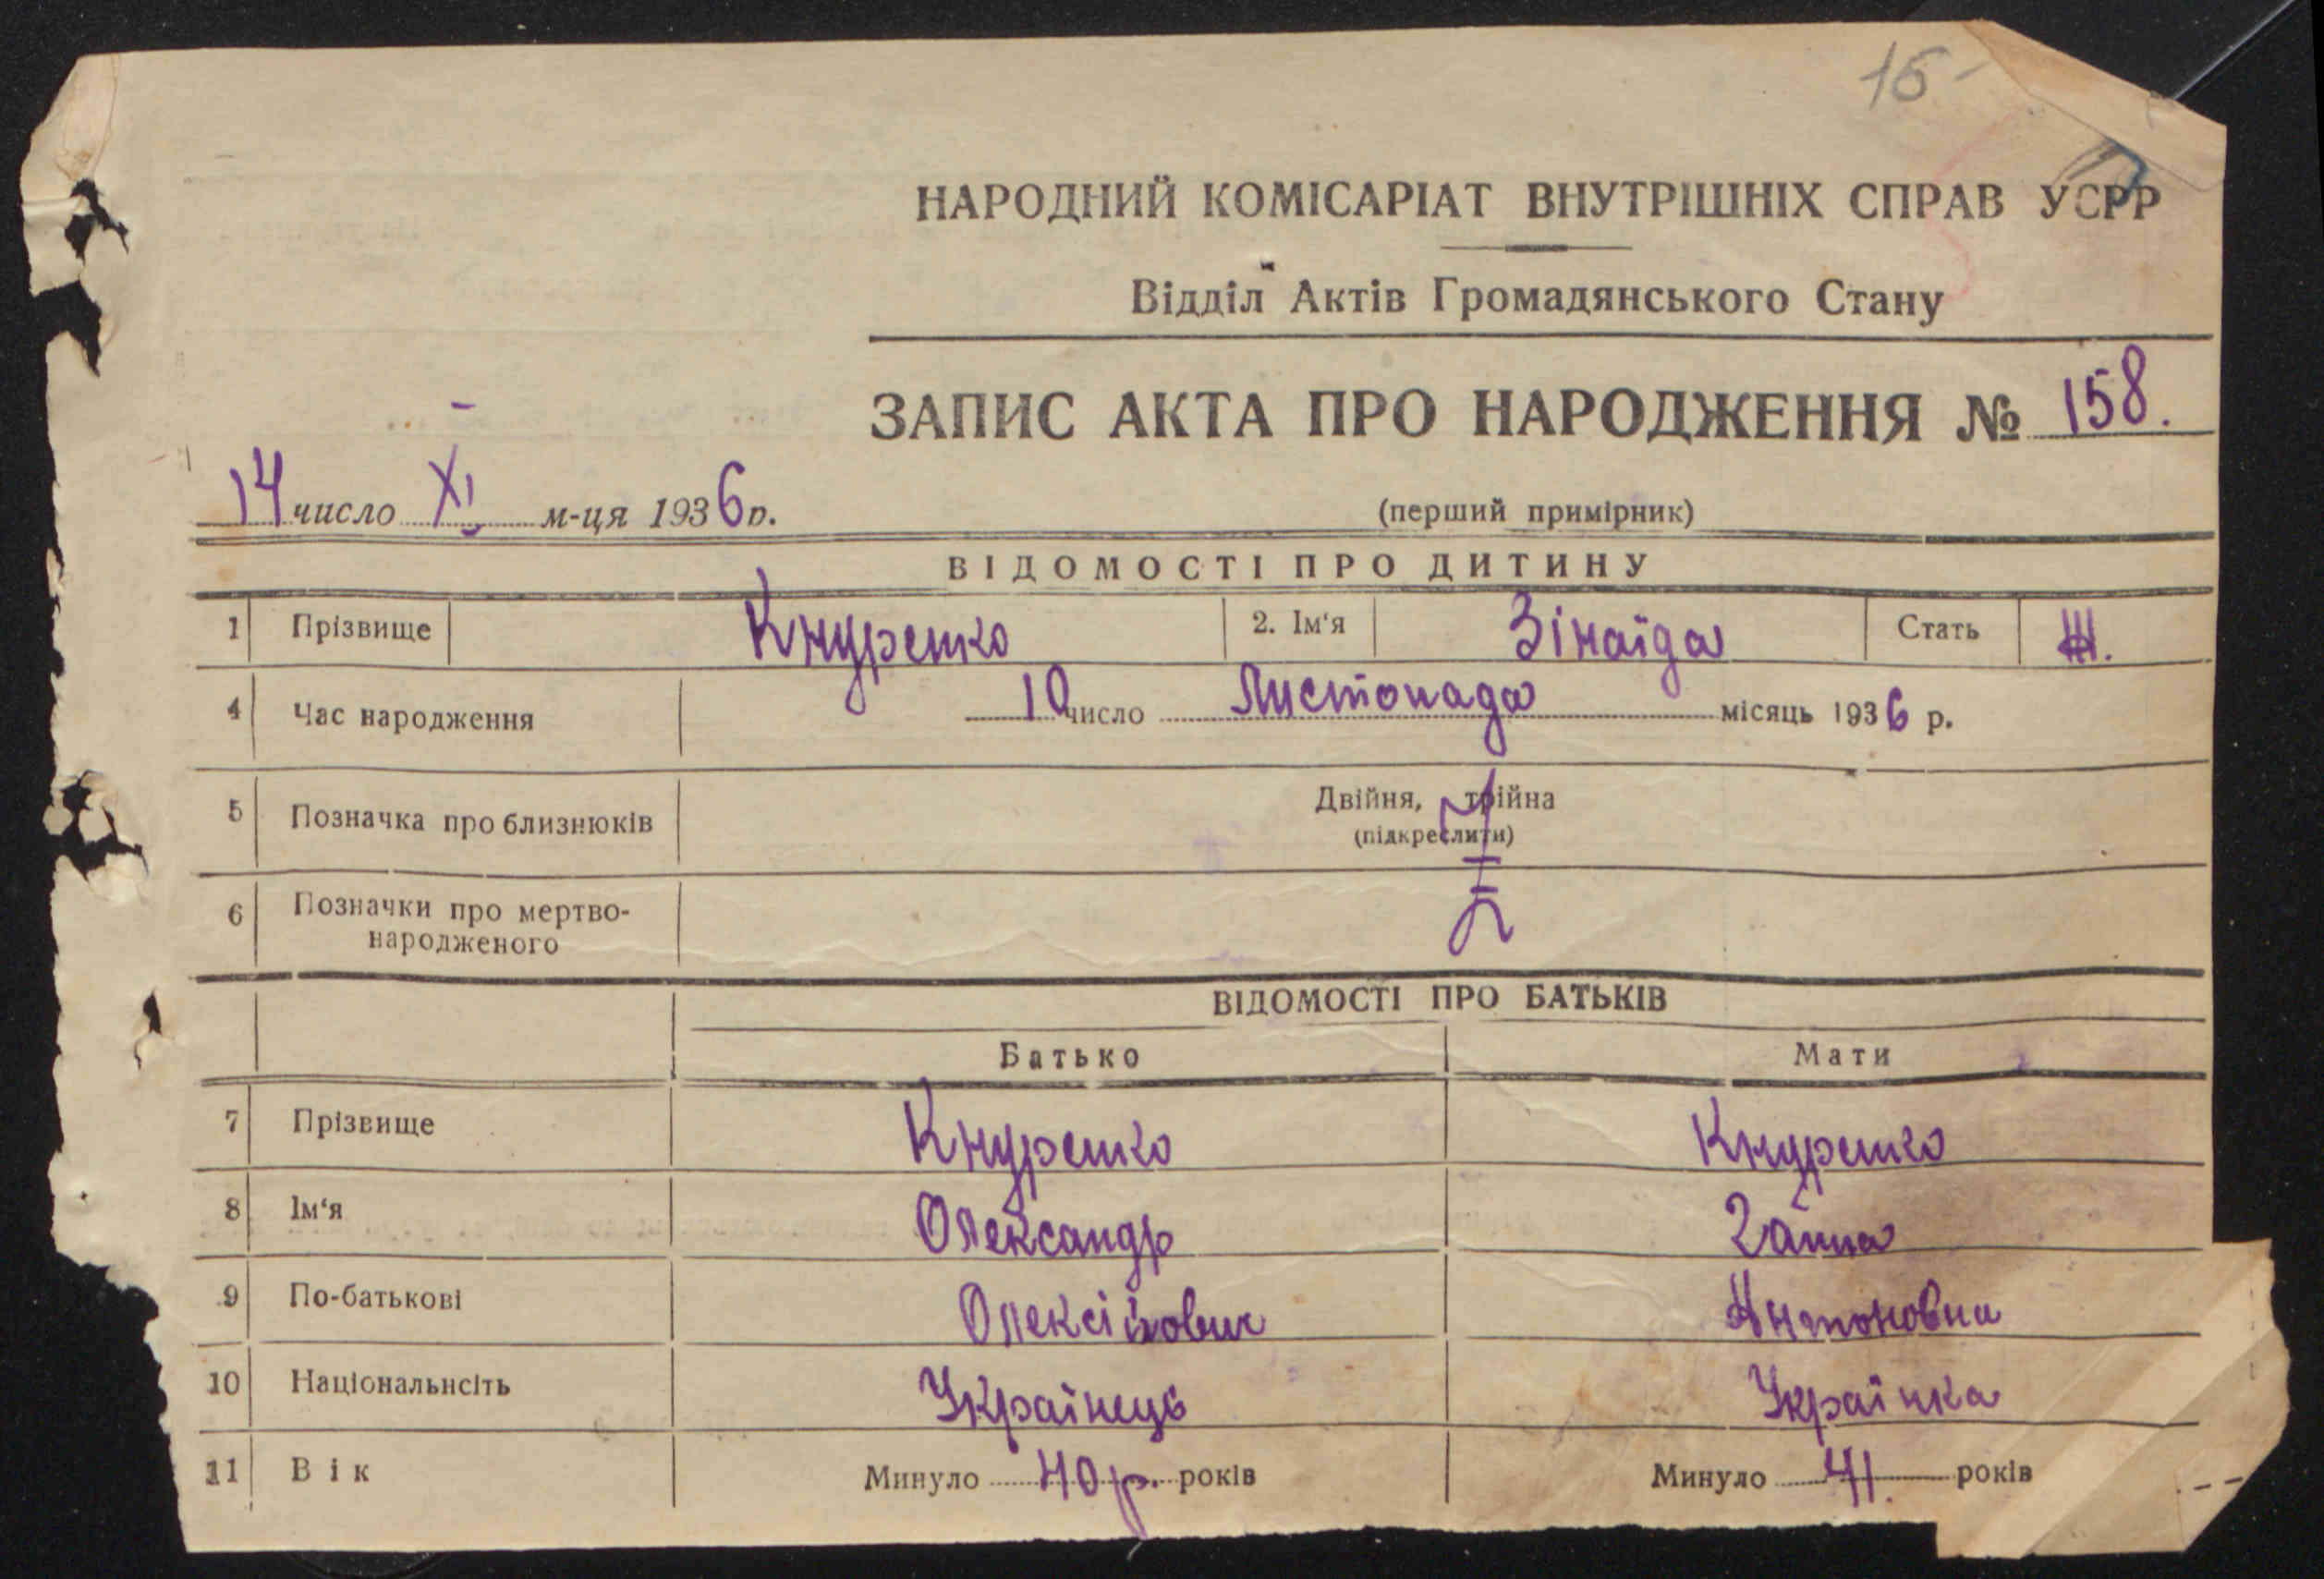 15-
НАРОДНИЙ КОМІСАРІАТ ВНУТРІШНІХ СПРАВ УСРР
Відділ Актів Громадянського Стану
ЗАПИС АКТА ПРО НАРОДЖЕННЯ № 158.
14 число XI м-ця 1936 р.
(перший примірник)
ВІДОМОСТІ ПРО ДИТИНУ
1 Прізвище Кнуренко 2. Ім'я Зінаїда Стать Ж.
4 Час народження 10 число Листопада місяць 1936 р.
5 Позначка про близнюків Двійня, трійна
(підкреслити)
6 Позначки про мертво-
народженого
ВІДОМОСТІ ПРО БАТЬКІВ
Батько Мати
7 Прізвище Кнуренко Кнуренко
8 Ім'я Олександр Ганна
9 По-батькові Олексійович Антоновна
10 Національнсіть Українець Українка
11 Вік Минуло 40 р. років Минуло 41. років